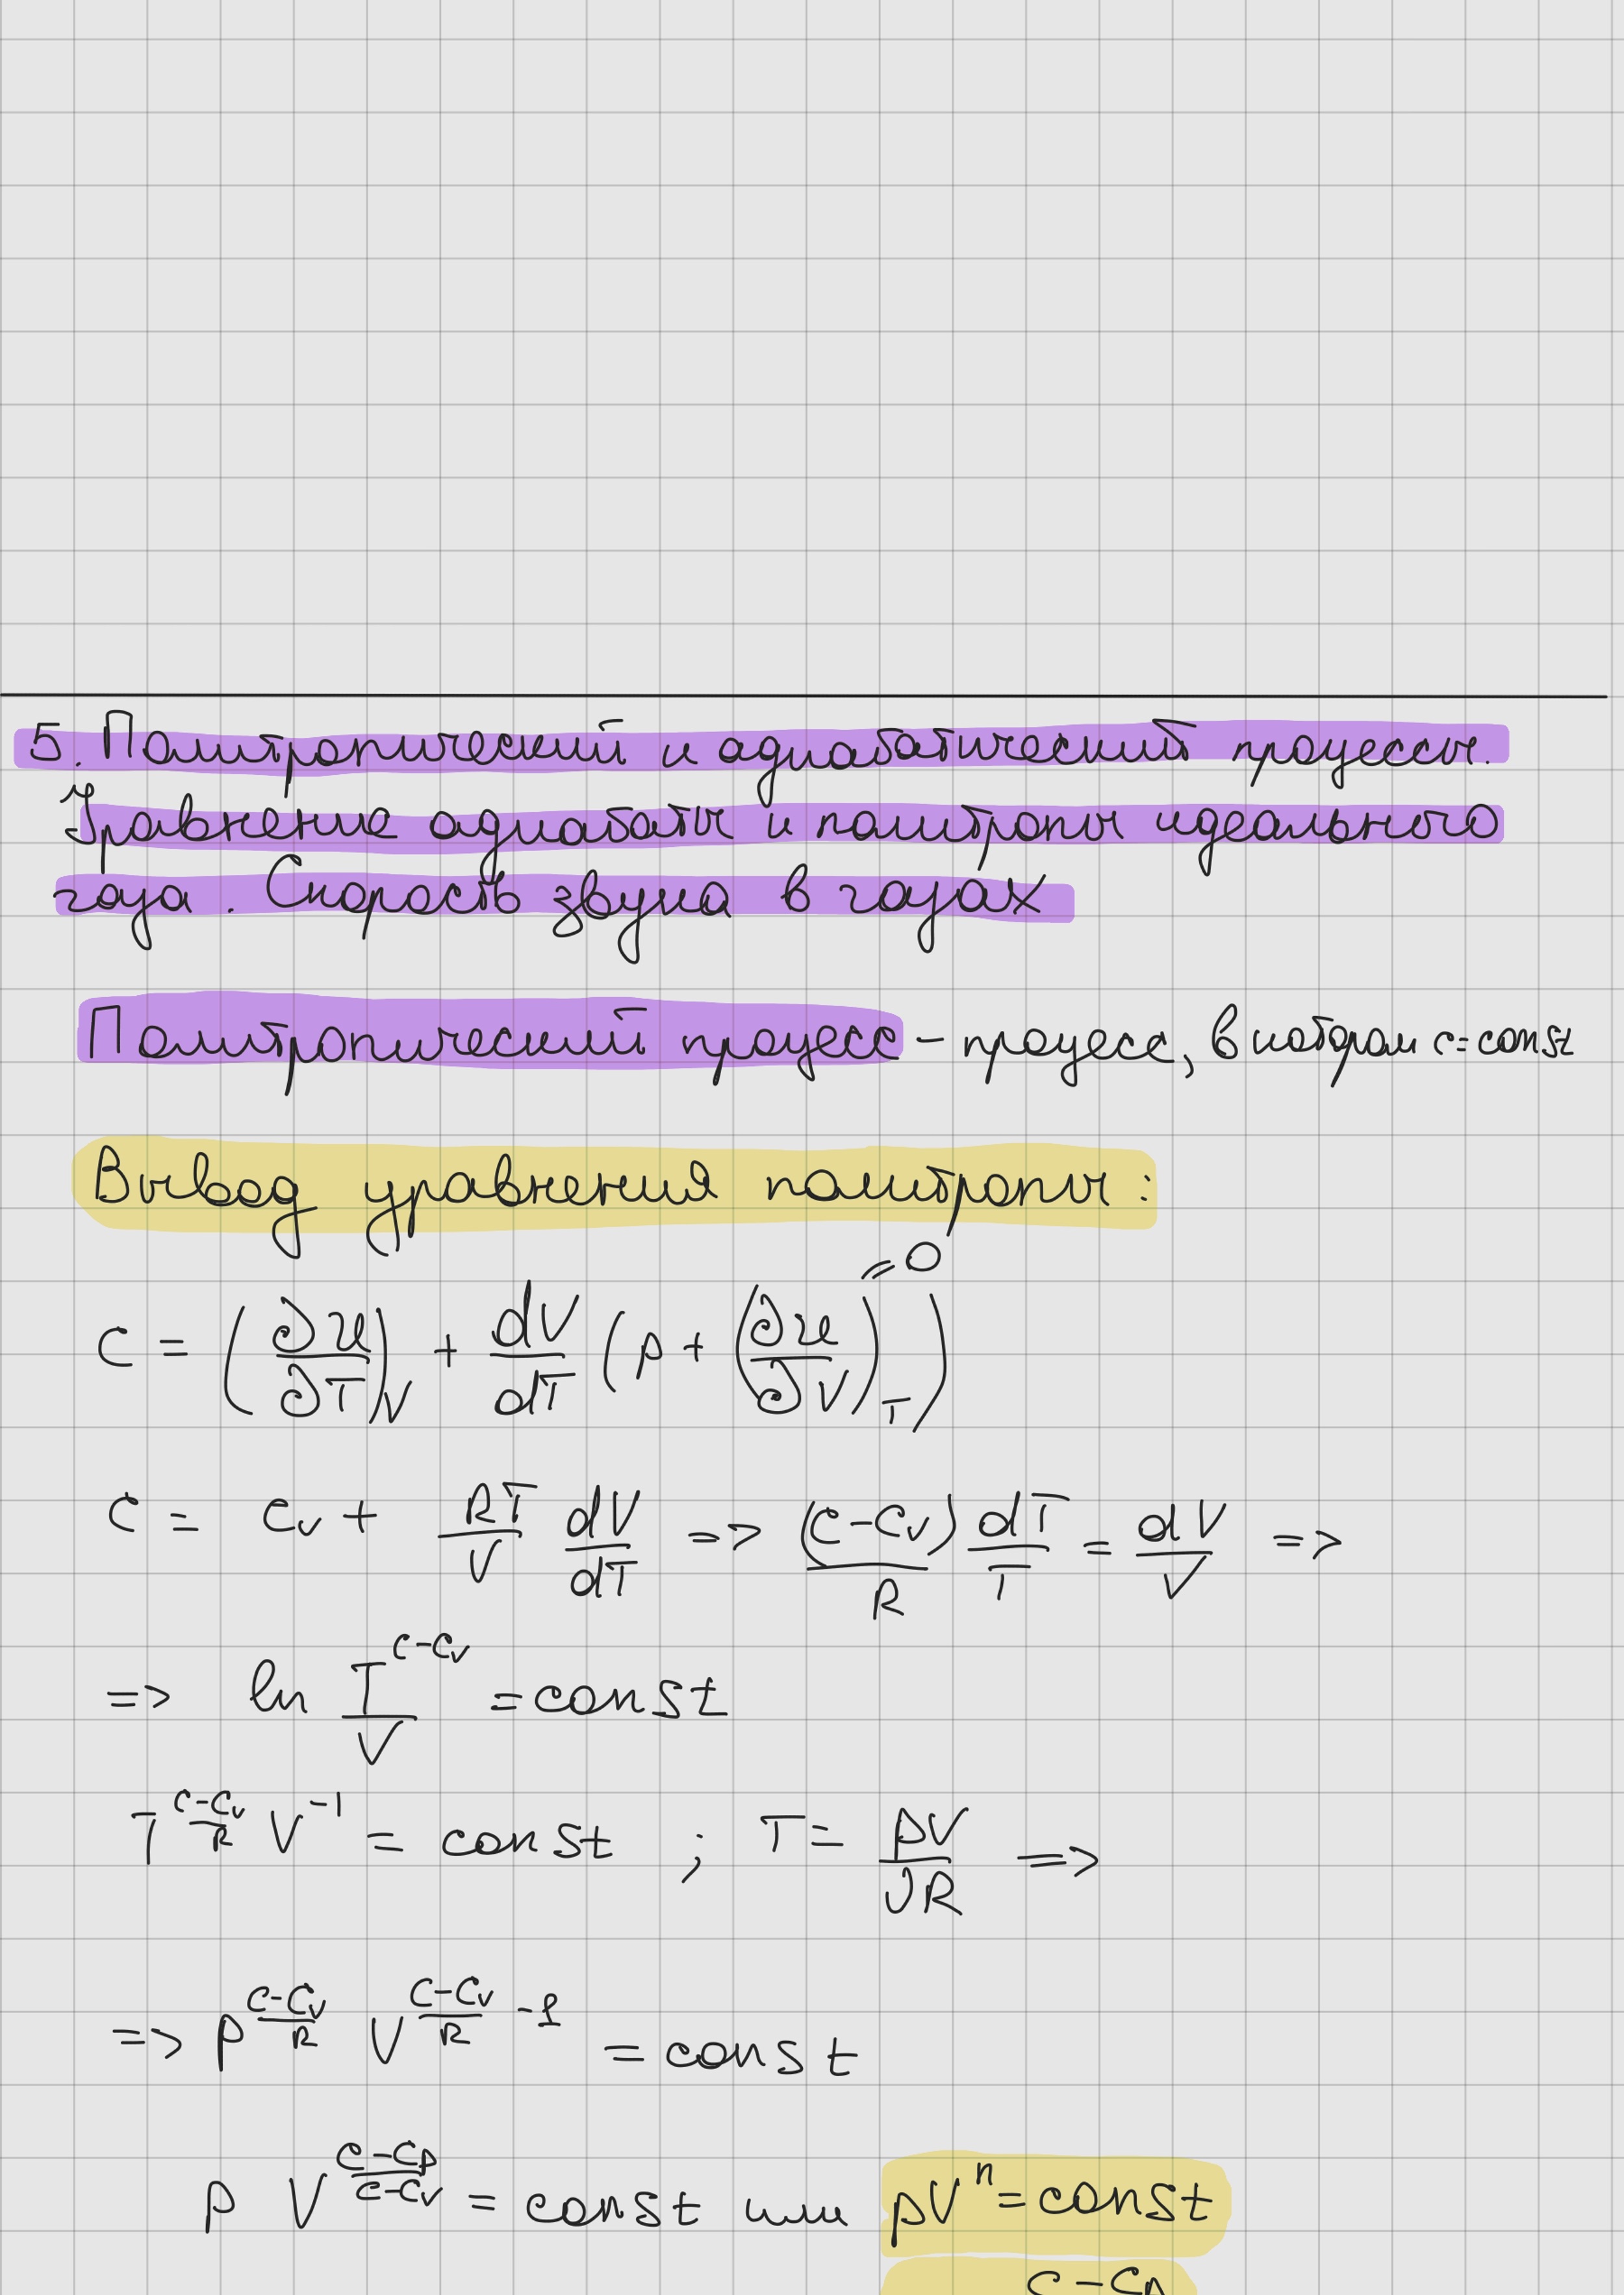 5. Политропический и адиабатический процессы.
Уравнение адиабаты и политропы идеального
газа. Скорость звука в газах
Политропический процесс – процесс, в котором c=const
Вывод уравнения политропы:
=0
C = (∂U/∂T)_V + dV/dT (p + (∂U/∂V)_T)
C = C_V + RT/V dV/dT => (C-C_V)/R dT/T = dV/V =>
=> ln T^(C-C_V)/V = const
T^((C-C_V)/R) V^(-1) = const ; T = pV/νR =>
=> p^((C-C_V)/R) V^((C-C_V)/R -1) = const
p V^((C-C_p)/(C-C_V)) = const или pV^n = const
C-C_p